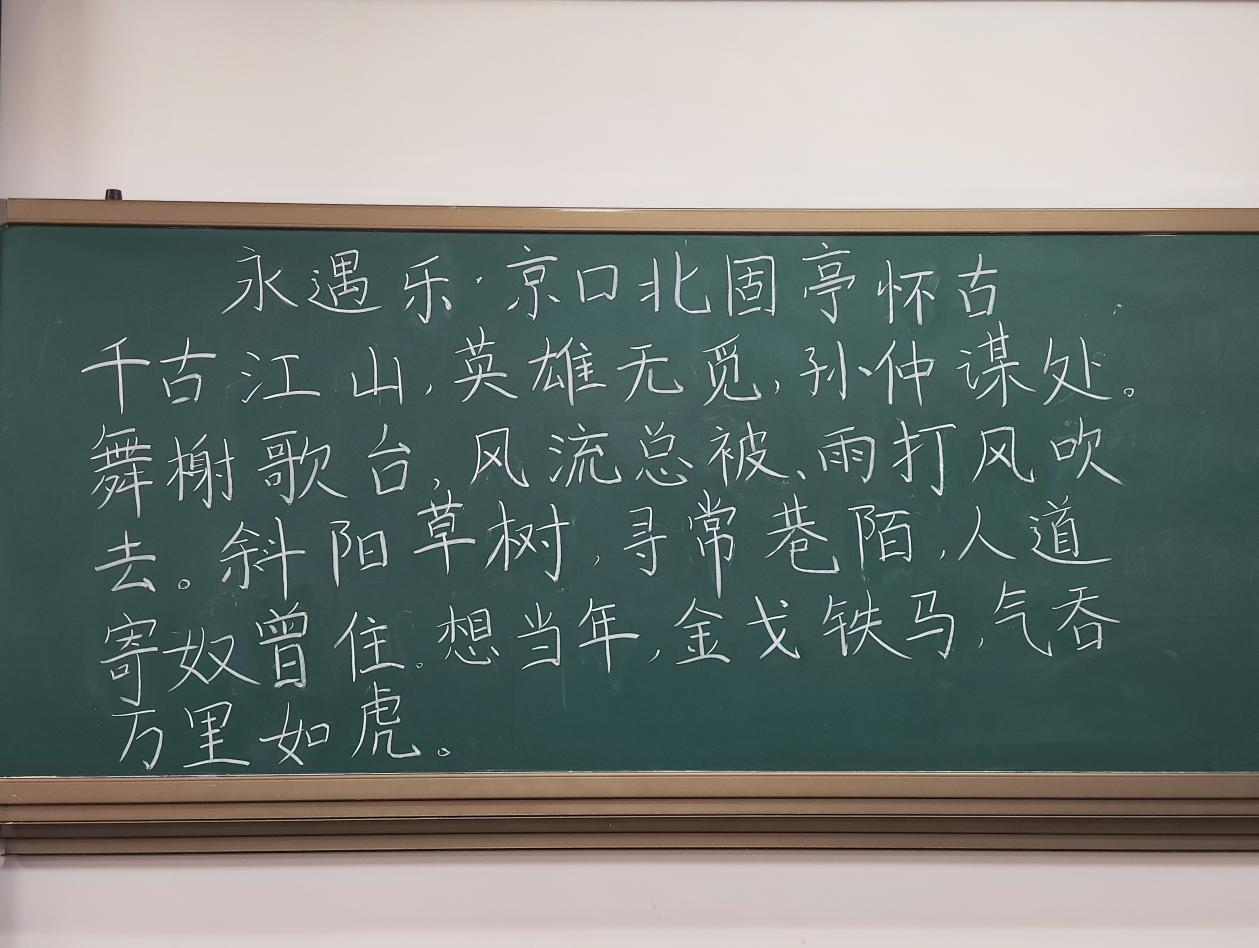 永遇乐·京口北固亭怀古
千古江山,英雄无觅,孙仲谋处。
舞榭歌台,风流总被、雨打风吹
去。斜阳草树,寻常巷陌,人道
寄奴曾住。想当年,金戈铁马,气吞
万里如虎。